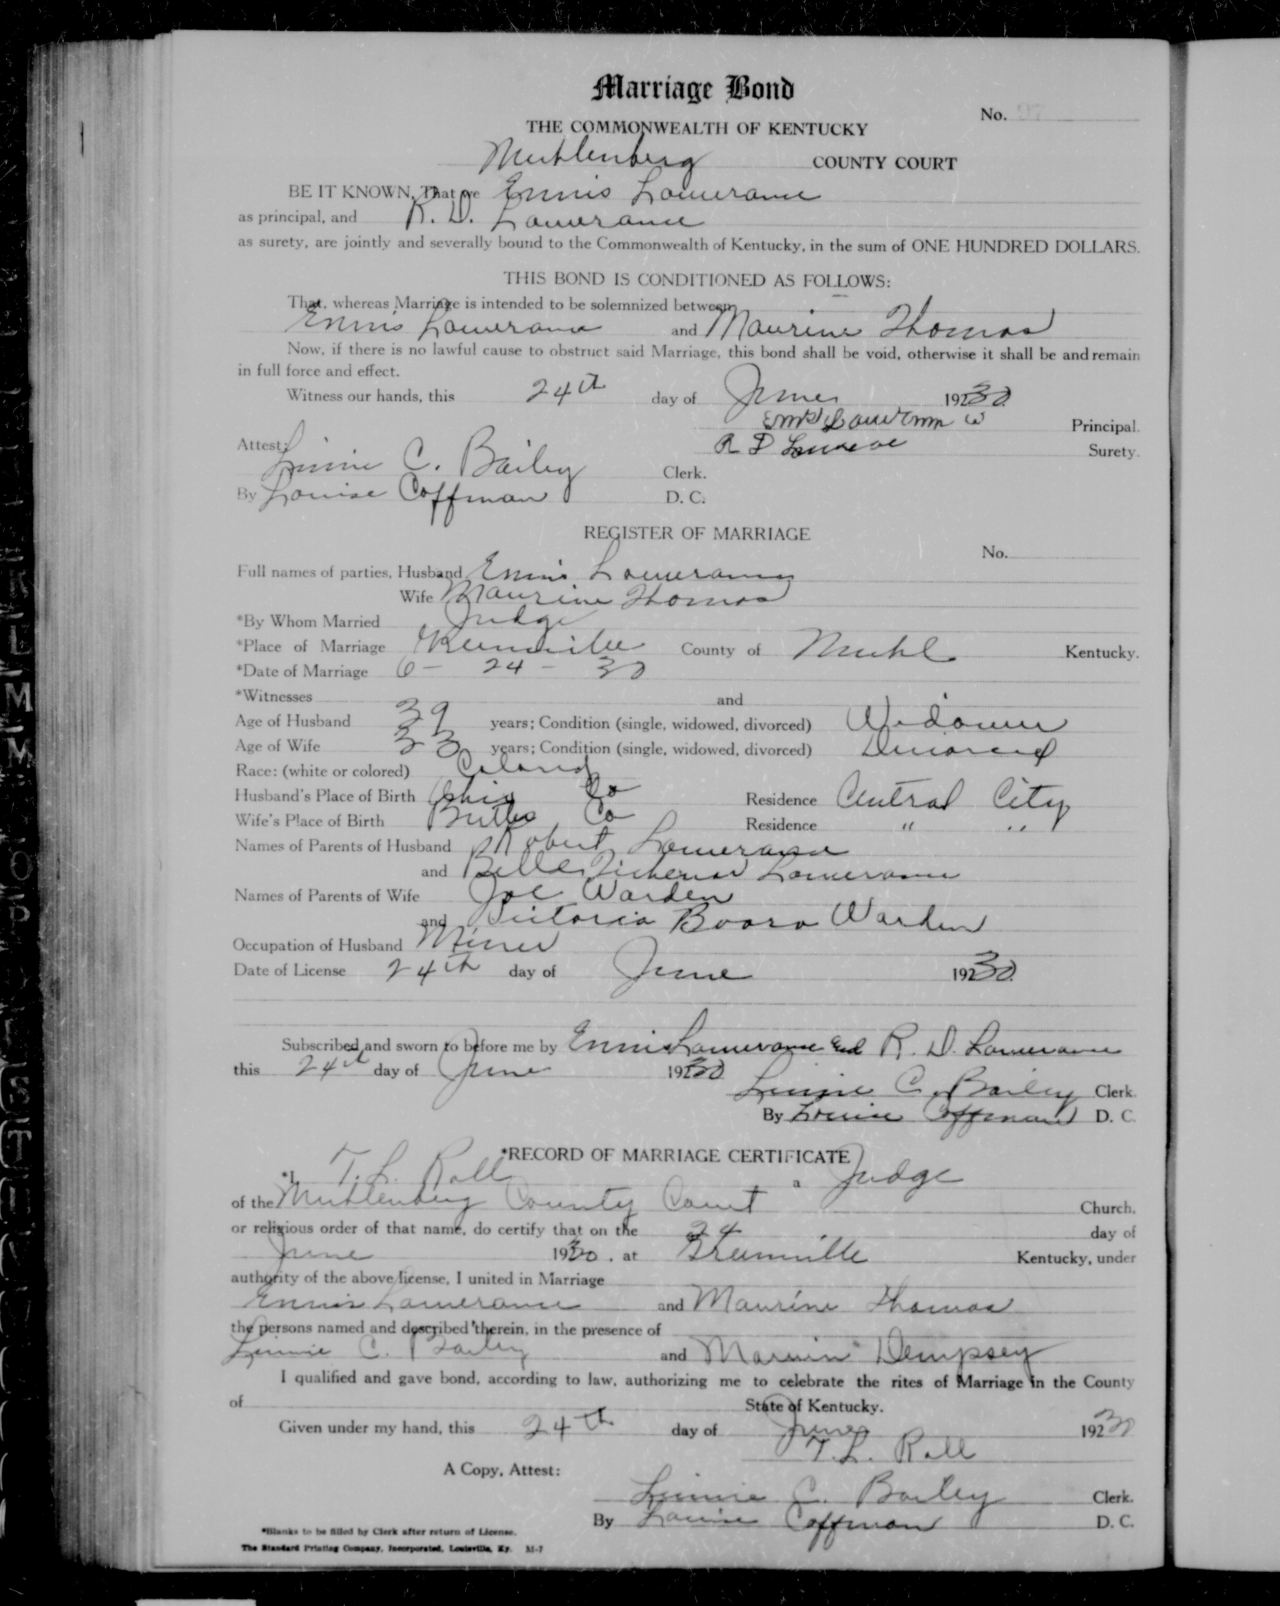 Marriage Bond
No.
THE COMMONWEALTH OF KENTUCKY
Muhlenberg COUNTY COURT
BE IT KNOWN, That we Ennis Lowerance
as principal, and R. D. Lowerance
as surety, are jointly and severally bound to the Commonwealth of Kentucky, in the sum of ONE HUNDRED DOLLARS.
THIS BOND IS CONDITIONED AS FOLLOWS:
That, whereas Marriage is intended to be solemnized between
Ennis Lowerance and Maurine Thomas
Now, if there is no lawful cause to obstruct said Marriage, this bond shall be void, otherwise it shall be and remain
in full force and effect.
Witness our hands, this 24th day of June 1930
Principal.
Attest: R D Surety.
Linnie C. Bailey Clerk.
By Louise Coffman D. C.
REGISTER OF MARRIAGE
No.
Full names of parties, Husband Ennis Lowerance
Wife Maurine Thomas
*By Whom Married Judge
*Place of Marriage Greenville County of Muhl Kentucky.
*Date of Marriage 6 - 24 - 30
*Witnesses and
Age of Husband 39 years; Condition (single, widowed, divorced) Widower
Age of Wife 33 years; Condition (single, widowed, divorced) Divorced
Race: (white or colored) Colored
Husband's Place of Birth Ohio Co Residence Central City
Wife's Place of Birth Butler Co Residence " "
Names of Parents of Husband Robert Lowerance
and Belle Lowerance
Names of Parents of Wife Joe Warden
and Victoria Warden
Occupation of Husband Miner
Date of License 24th day of June 1930
Subscribed and sworn to before me by Ennis Lowerance and R. D. Lowerance
this 24th day of June 1930
Linnie C. Bailey Clerk.
By Louise Coffman D. C.
*RECORD OF MARRIAGE CERTIFICATE
*I T. L. Roll a Judge
of the Muhlenberg County Court Church,
or religious order of that name, do certify that on the 24 day of
June 1930, at Greenville Kentucky, under
authority of the above license, I united in Marriage
Ennis Lowerance and Maurine Thomas
the persons named and described therein, in the presence of
Linnie C. Bailey and Marvin Dempsey
I qualified and gave bond, according to law, authorizing me to celebrate the rites of Marriage in the County
of State of Kentucky.
Given under my hand, this 24th day of June 1930
T. L. Roll
A Copy, Attest:
Linnie C. Bailey Clerk.
By Louise Coffman D. C.
*Blanks to be filled by Clerk after return of License.
The Standard Printing Company, Incorporated, Louisville, Ky. M-7